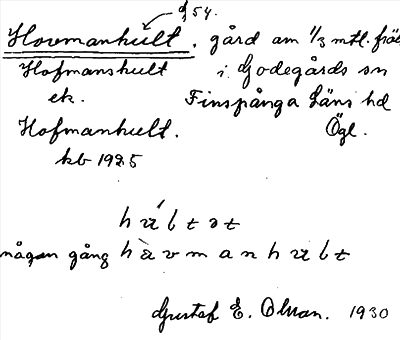 G 54.
Hovmanhult. gård om 1/3 mtl. fräs
Hofmanshult i Godegårds sn
ek. Finspånga läns hd
Hofmanhult. Ögl.
kb 1925
hult ət
någon gång håvmanhult
Gustaf E. Olson. 1930